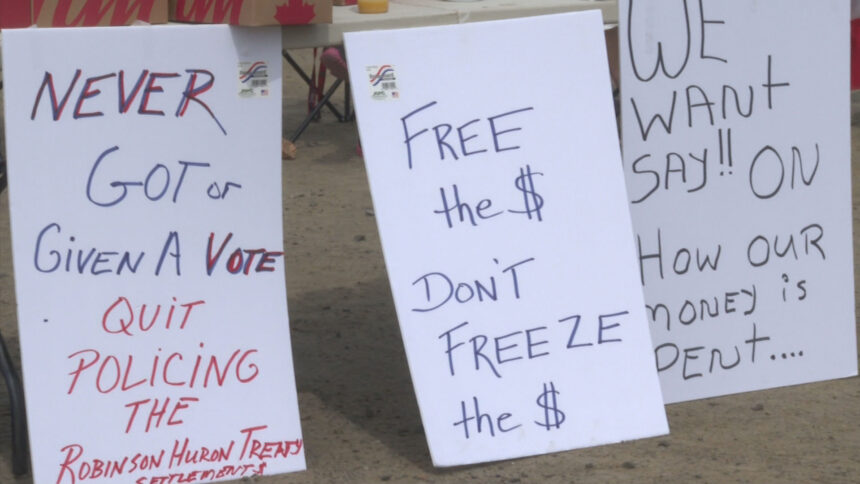 NEVER
GOT or
GIVEN A VOTE
QUIT
POLICING
THE
ROBINSON HURON TREATY
SETTLEMENT$
FREE
the $
DON'T
FREEZE
the $
WE
WANT
SAY!! ON
HOW OUR
MONEY is
PENT....